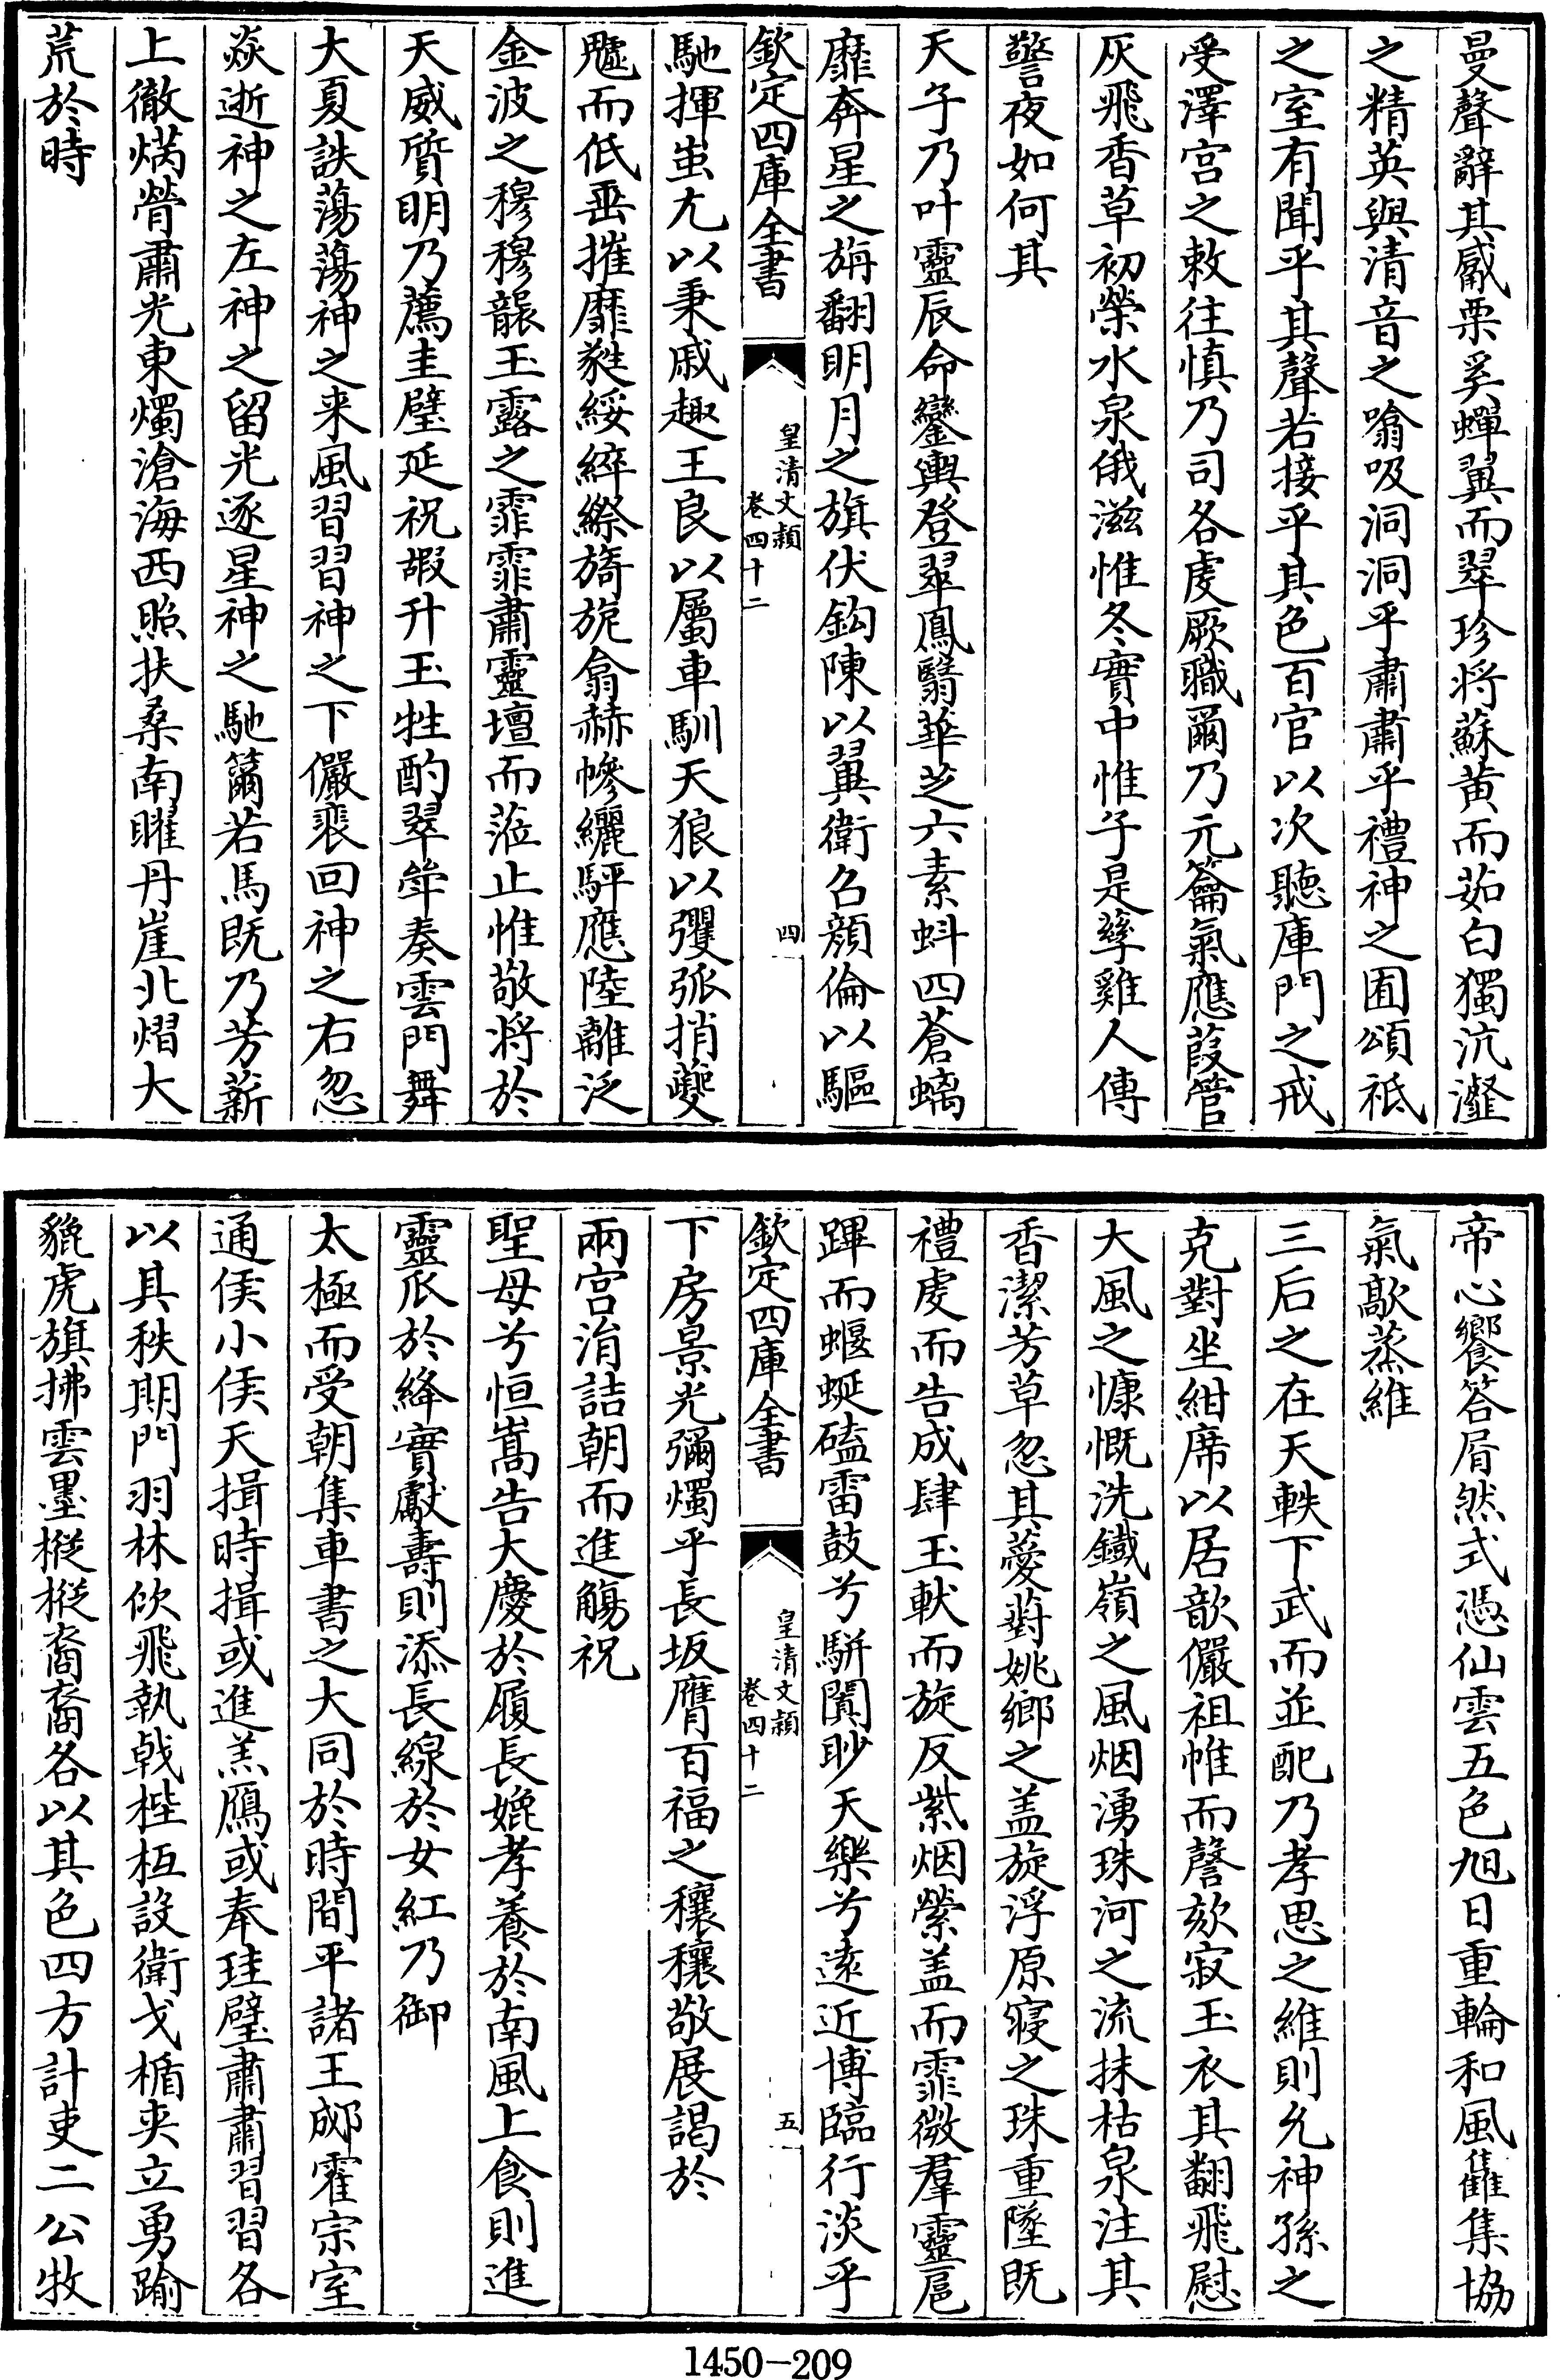 曼聲辭其觱栗奚蟬翼而翠珍將蘇黄而茹白獨沆瀣
之精英與清音之噏吸洞洞乎肅肅乎禮神之囿頌祗
之室有聞乎其聲若接乎其色百官以次聽庫門之戒
受澤宫之敕往慎乃司各虔厥職爾乃元籥氣應葭管
灰飛香草初榮水泉俄滋惟冬實中惟子是孳雞人傳
警夜如何其
天子乃叶靈辰命鑾輿登翠鳳翳華芝六素蚪四蒼螭
靡奔星之旃翻明月之旗伏鈎陳以翼衛召顔倫以驅
欽定四庫全書
皇清文穎
卷四十二
四
馳揮蚩尤以秉戚趣王良以屬車馴天狼以彏弧捎夔
魖而低垂摧靡㲝綏綷縩旖旎翕赫幓纚駍應陸離泛
金波之穆穆襲玉露之霏霏肅靈壇而蒞止惟敬將於
天威質明乃薦圭璧延祝嘏升玉牲酌翠斝奏雲門舞
大夏詄蕩蕩神之来風習習神之下儼裴回神之右忽
焱逝神之左神之留光逐星神之馳籋若馬既乃芳薪
上徹焫膋肅光東燭滄海西照扶桑南曜丹崖北熠大
荒於時
帝心饗答屑然式憑仙雲五色旭日重輪和風雔集協
氣歊蒸維
三后之在天軼下武而並配乃孝思之維則允神孫之
克對坐紺席以居歆儼祖帷而謦欬寂玉衣其翻飛慰
大風之慷慨洗鐵嶺之風烟湧珠河之流抹枯泉注其
香潔芳草忽其薆薱姚鄉之盖旋浮原寢之珠重墜既
禮虔而告成肆玉軑而旋反紫烟縈盖而霏微羣靈扈
蹕而蝘蜒磕雷鼓兮駢闐眇天樂兮遠近博臨行淡乎
欽定四庫全書
皇清文穎
卷四十二
五
下房景光彌燭乎長坂膺百福之穰穰敬展謁於
兩宫涓詰朝而進觴祝
聖母兮恒嵩告大慶於履長娩孝養於南風上食則進
靈瓜於絳實獻壽則添長線於女紅乃御
太極而受朝集車書之大同於時間平諸王郕霍宗室
通侯小侯天揖時揖或進羔鴈或奉珪璧肅肅習習各
以其秩期門羽林佽飛執戟梐枑設衛戈楯夾立勇踰
貔虎旗拂雲墨樅樅裔裔各以其色四方計吏二公牧
1450-209